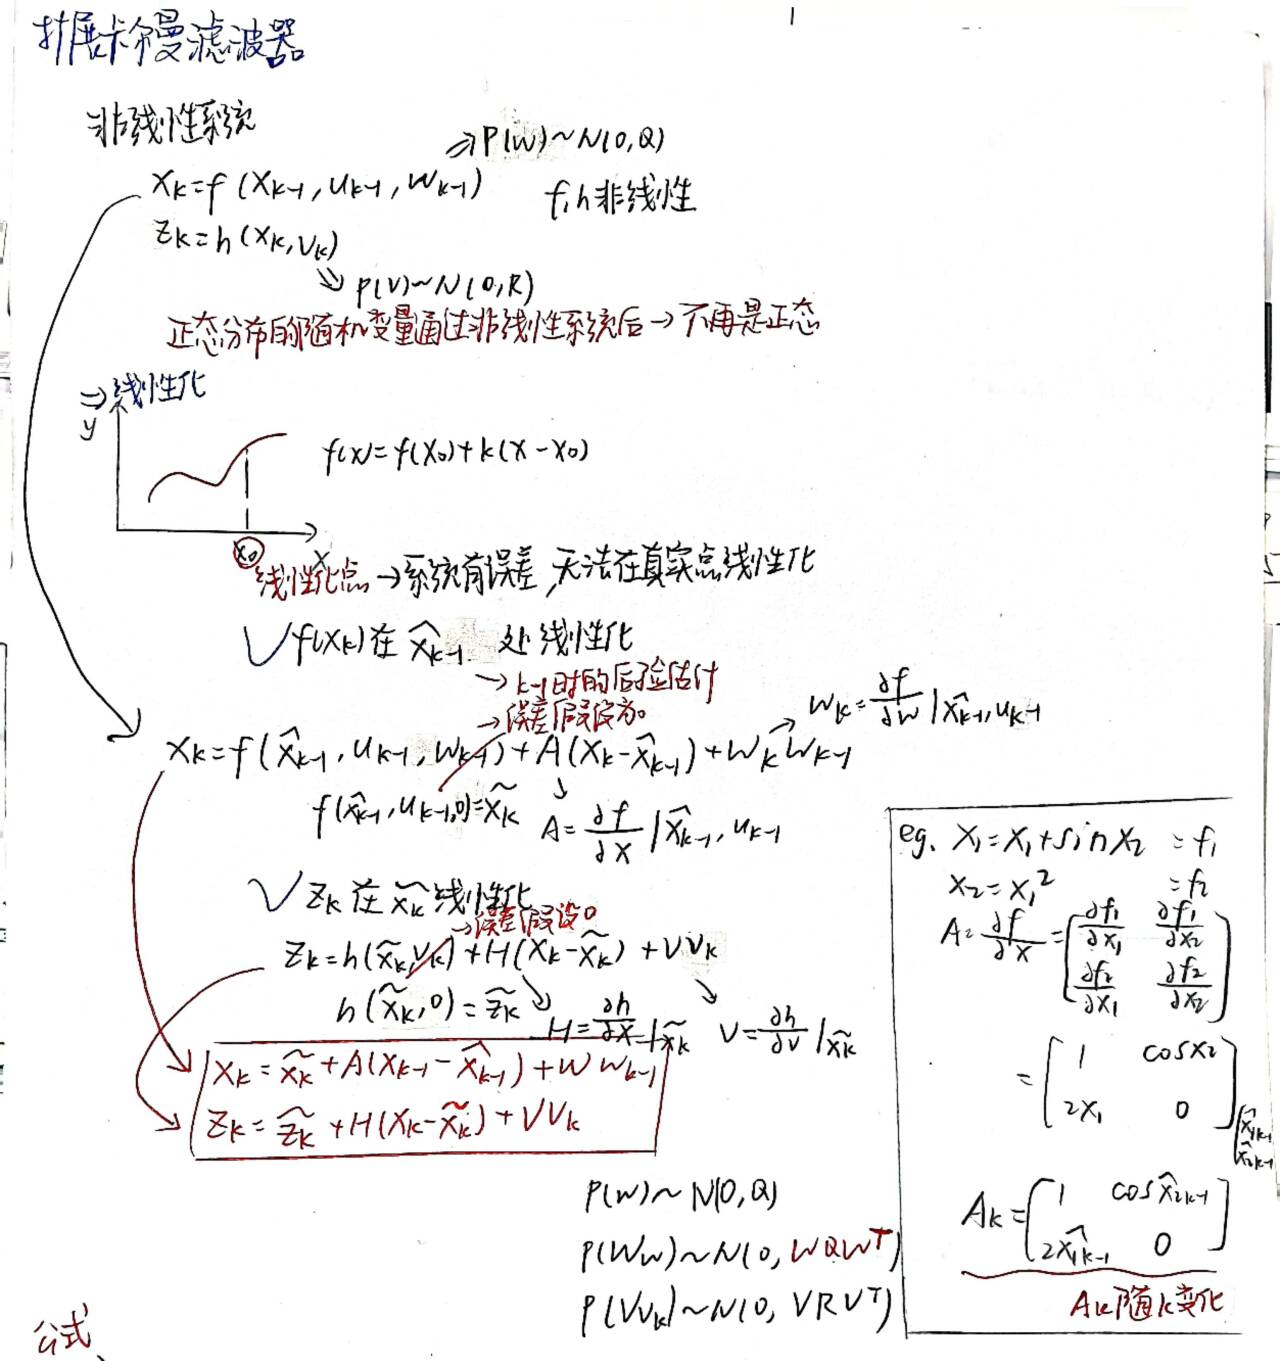 扩展卡尔曼滤波器
非线性系统
⇒P(w)~N(0,Q)
X_k=f(X_{k-1},u_{k-1},w_{k-1})
f,h非线性
Z_k=h(X_k,v_k)
⇒P(v)~N(0,R)
正态分布的随机变量通过非线性系统后→不再是正态
⇒线性化
y
f(x)=f(x₀)+k(x-x₀)
x₀
x
线性化点→系统有误差,无法在真实点线性化
√f(X_k)在 \hat{X}_{k-1} 处线性化
→k-1时的后验估计
→误差假设为0
W_k=∂f/∂w|\hat{X}_{k-1},u_{k-1}
X_k=f(\hat{X}_{k-1},u_{k-1},w_{k-1})+A(X_k-\hat{X}_{k-1})+W_k w_{k-1}
f(\hat{X}_{k-1},u_{k-1},0)=\tilde{X}_k
A=∂f/∂X|\hat{X}_{k-1},u_{k-1}
√Z_k在\tilde{X}_k线性化
→误差假设0
Z_k=h(\tilde{X}_k,v_k)+H(X_k-\tilde{X}_k)+Vv_k
h(\tilde{X}_k,0)=\tilde{Z}_k
H=∂h/∂X|\tilde{X}_k
V=∂h/∂v|\tilde{X}_k
X_k=\tilde{X}_k+A(X_{k-1}-\hat{X}_{k-1})+Ww_{k-1}
Z_k=\tilde{Z}_k+H(X_k-\tilde{X}_k)+Vv_k
P(w)~N(0,Q)
P(Ww)~N(0,WQW^T)
P(Vv_k)~N(0,VRV^T)
eg. X₁=X₁+sinX₂ =f₁
X₂=X₁² =f₂
A=∂f/∂X=[∂f₁/∂X₁ ∂f₁/∂X₂
∂f₂/∂X₁ ∂f₂/∂X₂]
=[1 cosX₂
2X₁ 0]|\hat{X}_{1k-1}
\hat{X}_{2k-1}
A_k=[1 cos\hat{X}_{2k-1}
2\hat{X}_{1k-1} 0]
A_k随k变化
公式